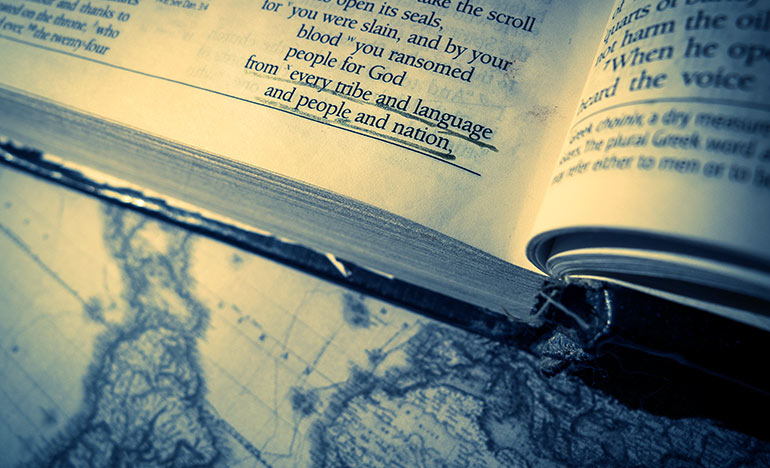 and thanks to
on the throne, ʻwho
ever, ᵐthe twenty-four
See Dan. 7:4
take the scroll
to open its seals,
for ʻyou were slain, and by your
blood ʷyou ransomed
people for God
from ˣevery tribe and language
and people and nation,
quarts of
not harm the oil
"When he ope
heard the voice
Greek choinix, a dry measure
The plural Greek word a
refer either to men or to b